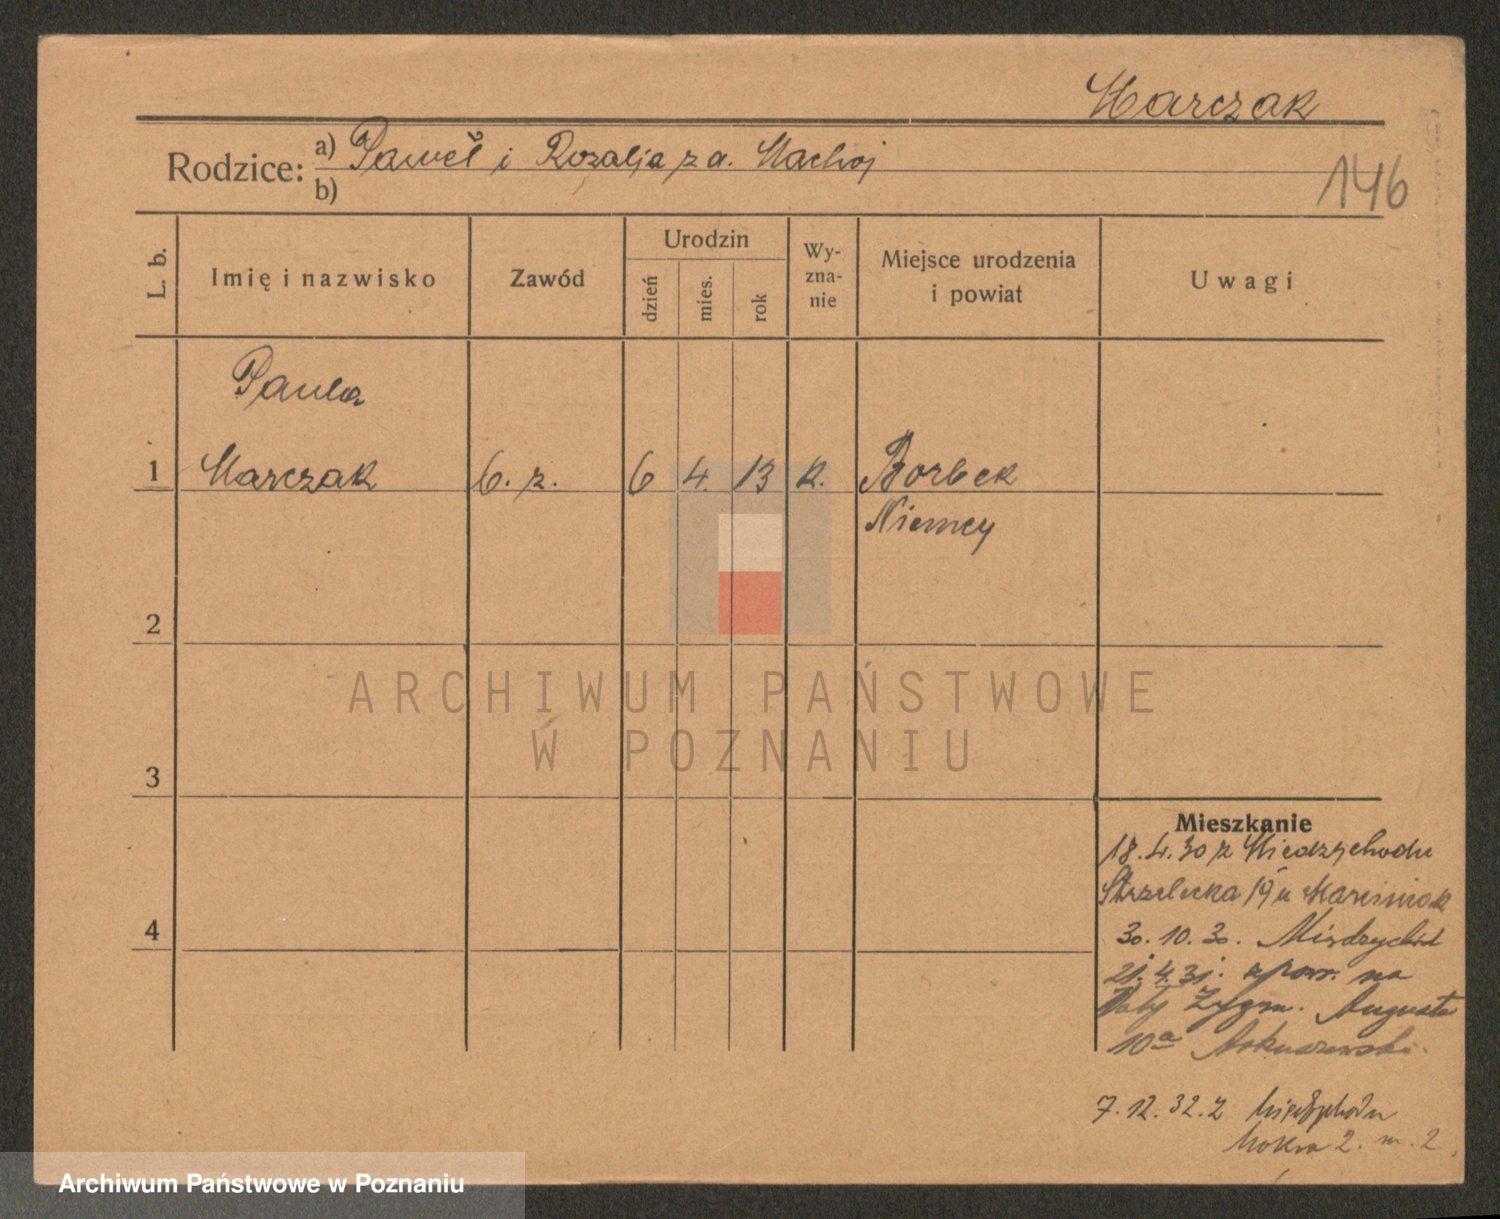 Marczak
Rodzice: a) Paweł i Rozalja z d. Machoj
b)
146
L. b.
Imię i nazwisko
Zawód
Urodzin
dzień
mies.
rok
Wy-
zna-
nie
Miejsce urodzenia
i powiat
Uwagi
Paula
1 Marczak b. z. 6 4. 13 k. Borbek
Niemcy
2
3
4
Mieszkanie
18.4.30 z Miedzychodu
Strzelecka 19 u Marciniak
30.10.30. Międzychód
21.4.31. z pow. na
Zygm. Augusta
10a
7.12.32. z Międzychodu
Mokra 2. m. 2
ARCHIWUM PAŃSTWOWE
W POZNANIU
Archiwum Państwowe w Poznaniu